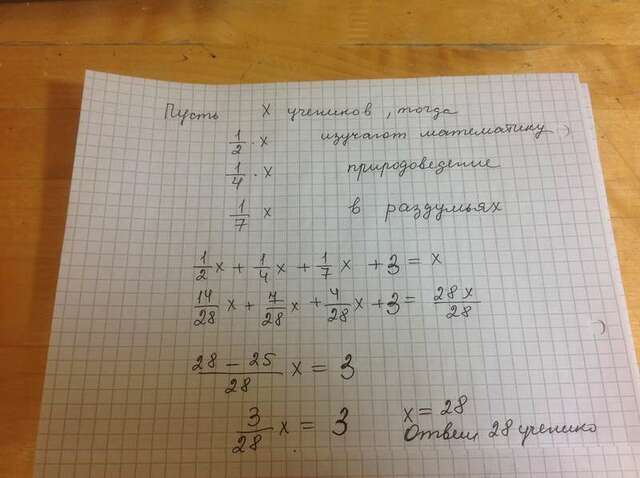 Пусть x учеников, тогда
1/2 · x изучают математику
1/4 · x природоведение
1/7 x в раздумьях
1/2 x + 1/4 x + 1/7 x + 3 = x
14/28 x + 7/28 x + 4/28 x + 3 = 28x/28
28 - 25/28 x = 3
3/28 x = 3 x = 28
Ответ 28 ученико